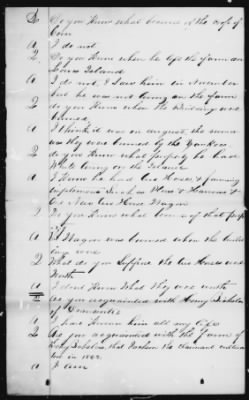 Q Do you know what became of the crop of
Corn
A I do not
Q Do you know when he left the farm on
Island
A I do not, I saw him in
but he was not living on the farm
Q do you know when the building was
burned
A I think it was in august, the same
as they was burned by the Yankees
Q do you know what property he had
While living on the Island
A I know he had two Horses & farming
implements Such as Plows & Harness &
one New two Horse Wagon
Q Do you know what became of that prop
A Wagon was burned when the build
ing were
Q What do you Suppose the two Horses was
Worth
A I dont Know What they was worth
Q Are you acquainted with Henry
of
A I have Known him all my life
Q Are you acquainted with the farm of
that the claimant
in 1862
A I am